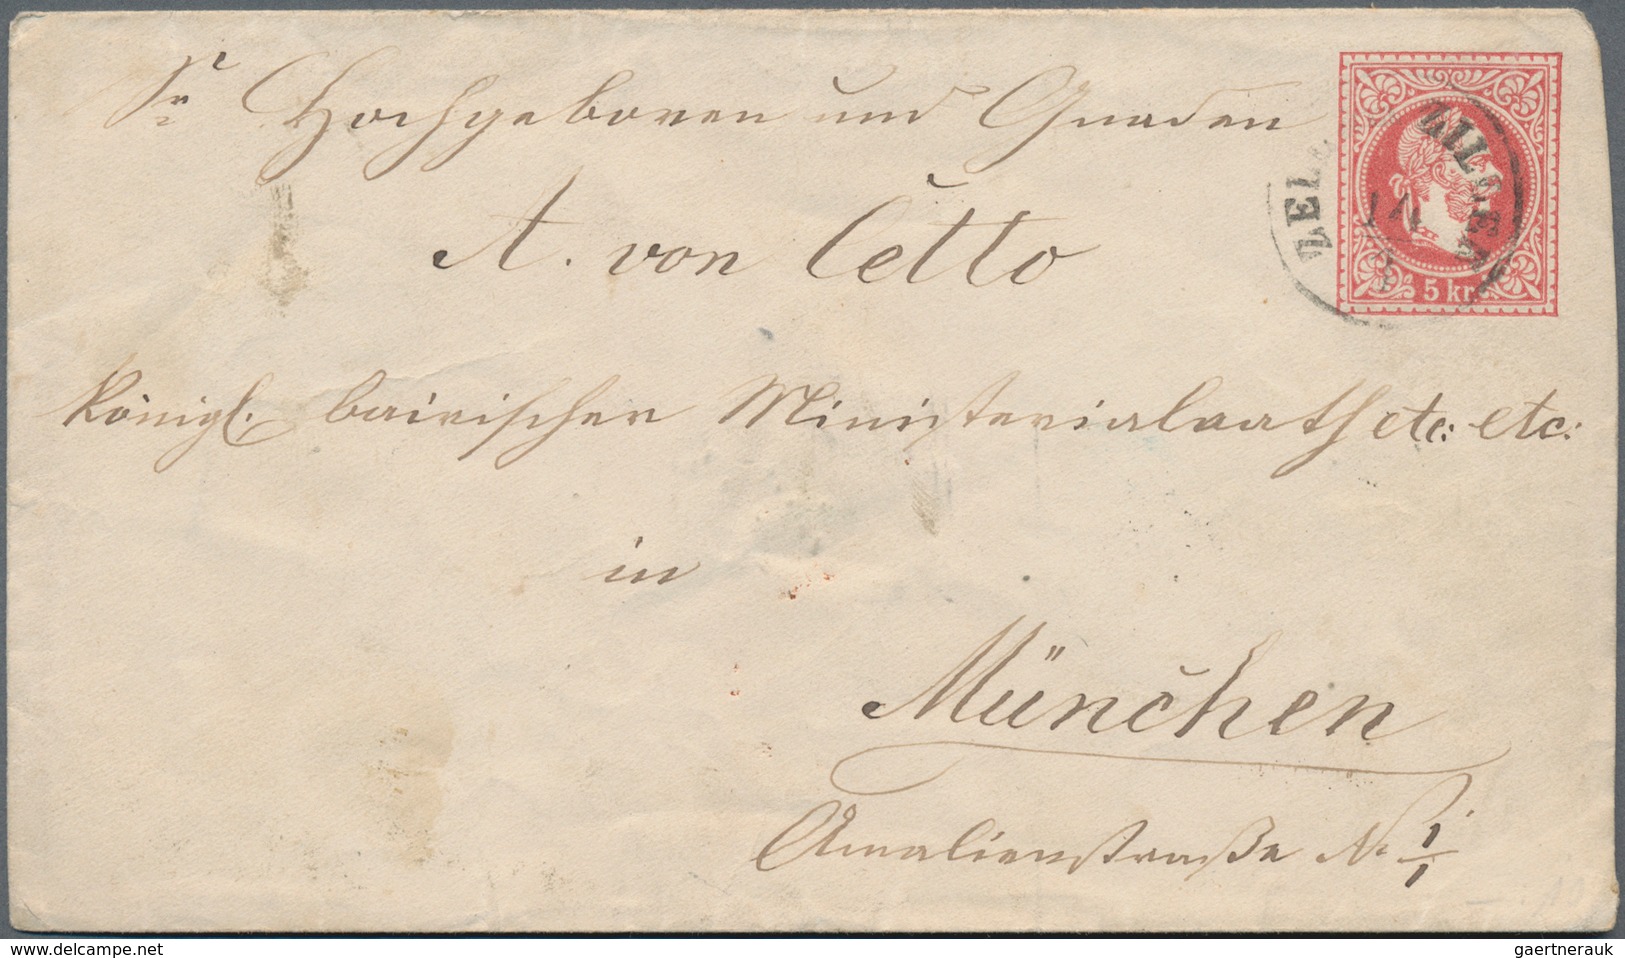 Sr Hochgeboren und Gnaden
A. von Cetto
Königl. bairischer Ministerialrath etc: etc:
in
München
Amalienstraße No 1/1
ZELL
ZILLER
5 kr
www.delcampe.net
gaertnerauk